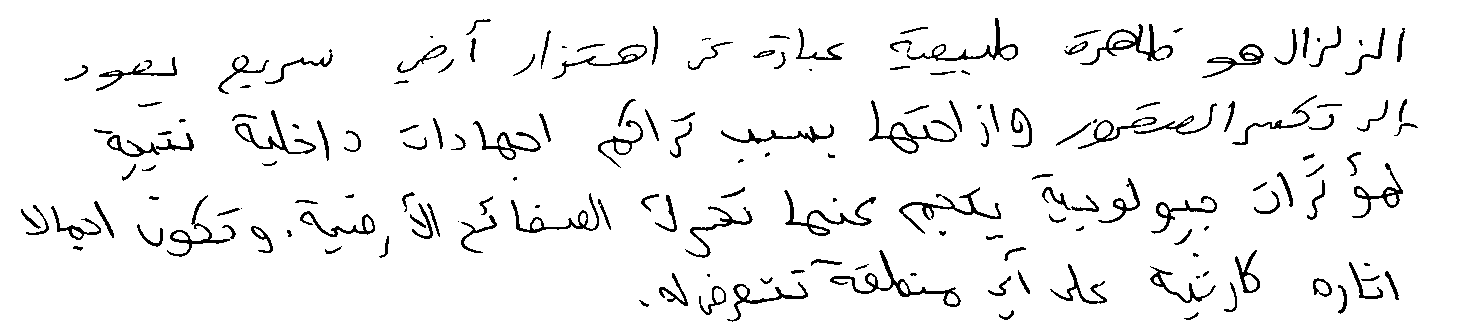 الزلزال هو ظاهرة طبيعية عبارة عن اهتزاز أرضي سريع يعود
إلى تكسر الصخور وازاحتها بسبب تراكم اجهادات داخلية نتيجة
لمؤثرات جيولوجية ينجم عنها تحرك الصفائح الأرضية. وتكون اجمالا
اثاره كارثية على أي منطقة تتعرض له.